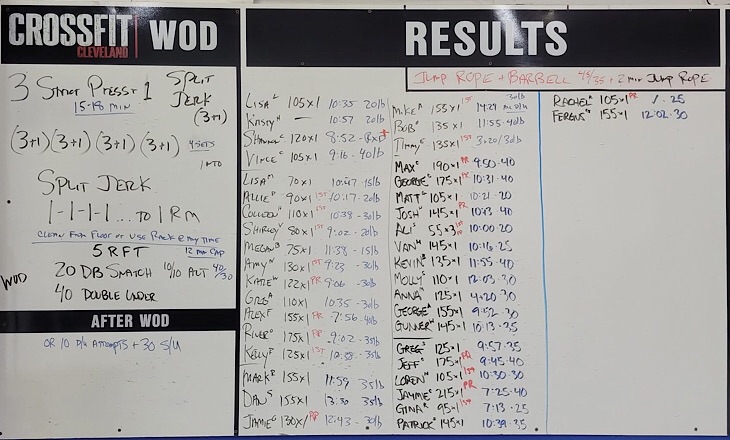 CROSSFIT CLEVELAND | WOD
3 Strict Press + 1 SPLIT JERK
15-18 MIN (3+1)
(3+1)(3+1)(3+1)(3+1) 4 SETS
SPLIT JERK
1-1-1-1... TO 1 RM
CLEAN FROM FLOOR OR USE RACK @ ANY TIME
5 RFT 12 MIN CAP
WOD 20 DB SNATCH 10/10 ALT 40/30
40 DOUBLE UNDER
AFTER WOD
OR 10 D/U ATTEMPTS + 30 S/U
RESULTS
JUMP ROPE + BARBELL 45/35 + 2 min JUMP ROPE
LISA 105x1 10:35 20lb
KRISTY — 10:57 20lb
120x1 8:52 - RXD +
VINCE 105x1 9:16 - 40lb
LISA 70x1 10:47 15lb
ALLIE 90x1 1ST 10:17 - 20lb
COLLEEN 110x1 1ST 10:38 - 30lb
SHIRLEY 80x1 1ST 9:02 - 20lb
MEGAN 75x1 11:38 - 15lb
AMY 130x1 1ST 9:23 - 30lb
KATIE 122x1 PR 9:06 - 30lb
GREG 110x1 10:35 - 30lb
ALEX 155x1 PR 7:56 - 40lb
RIVER 175x1 PR 9:02 - 35lb
KELLY 125x1 1ST 10:38 - 35lb
MARK 155x1 11:59 35lb
DAN 155x1 13:30 35lb
JIMMIE 130x1 PR 12:43 - 30lb
MIKE 155x1 1ST 14:24 30lb
BOB 135x1 11:55 - 40lb
JIMMY 135x1 1ST 3+20/30lb
MAX 190x1 PR 9:50 - 40
GEORGE 175x1 PR 10:31 - 40
MATT 105x1 10:21 - 20
JOSH 145x1 PR 10:13 - 40
ALI 55x3 1ST 10:00 20
VAN 145x1 10:16 - 25
KEVIN 135x1 11:55 - 40
MOLLY 110x1 12:03 - 30
ANNA 125x1 4:20 30
GEORGE 155x1 9:52 - 30
GUNNER 145x1 10:13 - 35
GREG 125x1 9:57 - 35
JEFF 175x1 PR 9:45 - 40
LOREN 105x1 1ST 10:30 - 30
JAYME 215x1 PR 7:25 - 40
GINA 95x1 1ST 7:13 - 25
PATRICK 145x1 10:39 - 35
RACHEL 105x1 PR 25
FERGUS 155x1 12:02 - 30